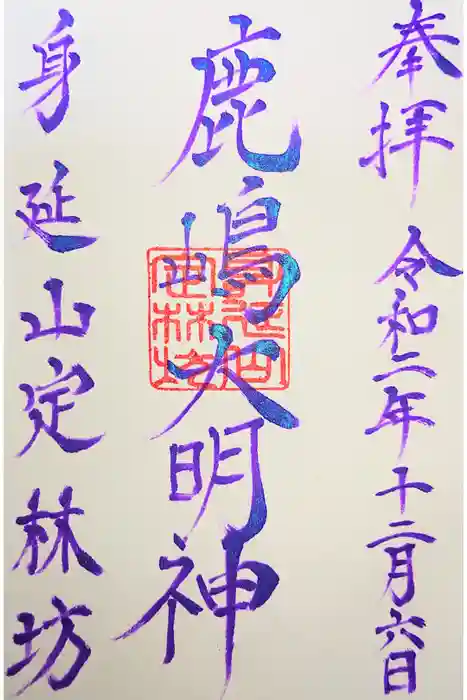 奉拝 令和二年十二月六日
鹿嶋大明神
身延山定林坊
身延山定林坊